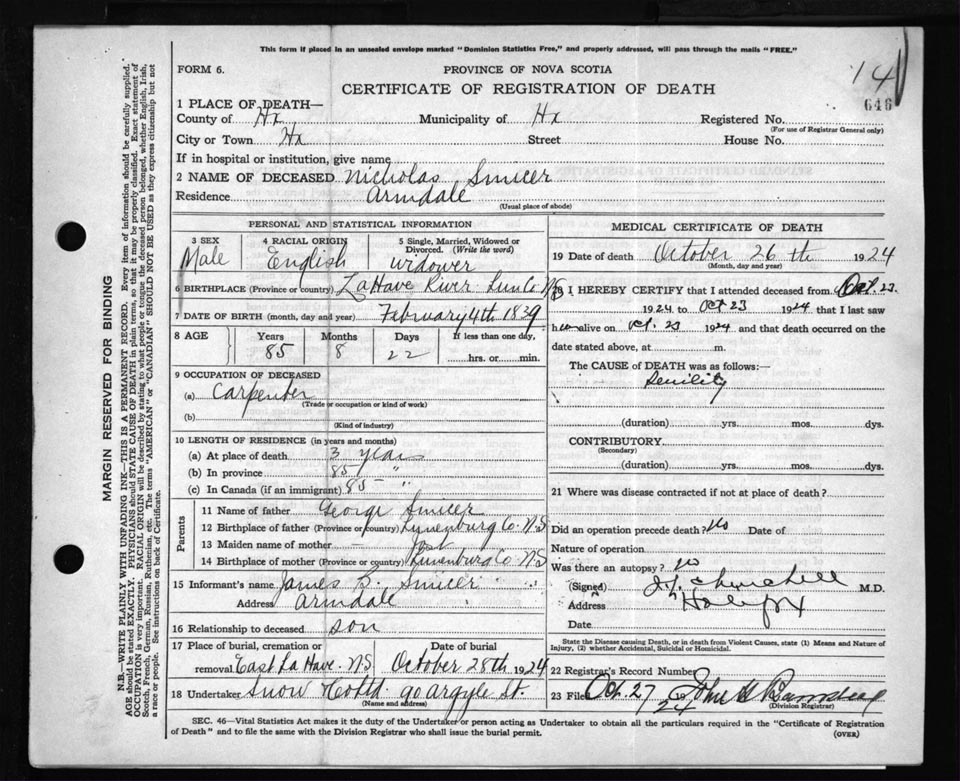 This form if placed in an unsealed envelope marked "Dominion Statistics Free," and properly addressed, will pass through the mails "FREE."
FORM 6.
PROVINCE OF NOVA SCOTIA
14
CERTIFICATE OF REGISTRATION OF DEATH
646
1 PLACE OF DEATH—
County of Hx Municipality of Hx Registered No.
(For use of Registrar General only)
City or Town Hx Street House No.
If in hospital or institution, give name
2 NAME OF DECEASED Nicholas Smicer
Residence Armdale
(Usual place of abode)
PERSONAL AND STATISTICAL INFORMATION
3 SEX 4 RACIAL ORIGIN 5 Single, Married, Widowed or Divorced. (Write the word)
Male English Widower
6 BIRTHPLACE (Province or country) LaHave River Lun Co NS
7 DATE OF BIRTH (month, day and year) February 4th 1839
8 AGE Years Months Days If less than one day,
85 8 22 hrs. or min.
9 OCCUPATION OF DECEASED
(a) Carpenter
(Trade or occupation or kind of work)
(b)
(Kind of industry)
10 LENGTH OF RESIDENCE (in years and months)
(a) At place of death 3 years
(b) In province 85 "
(c) In Canada (if an immigrant) 85 "
Parents
11 Name of father George Smicer
12 Birthplace of father (Province or country) Lunenburg Co. N.S
13 Maiden name of mother — Jost
14 Birthplace of mother (Province or country) Lunenburg Co. N.S
15 Informant's name James B. Smicer
Address Armdale
16 Relationship to deceased son
17 Place of burial, cremation or Date of burial
removal East La Have. N.S. October 28th 1924
18 Undertaker Snow & Co Ltd 90 Argyle St.
(Name and address)
MEDICAL CERTIFICATE OF DEATH
19 Date of death October 26th 1924
(Month, day and year)
I HEREBY CERTIFY that I attended deceased from Oct. 23
1924 to Oct 23 1924 that I last saw
him alive on Oct. 23 1924 and that death occurred on the
date stated above, at m.
The CAUSE OF DEATH was as follows:—
Senility
(duration) yrs. mos. dys.
CONTRIBUTORY
(Secondary)
(duration) yrs. mos. dys.
21 Where was disease contracted if not at place of death?
Did an operation precede death? No Date of
Nature of operation
Was there an autopsy? No
(Signed) Churchill M.D.
Address Halifax
Date
State the Disease causing Death, or in death from Violent Causes, state (1) Means and Nature of Injury, (2) whether Accidental, Suicidal or Homicidal.
22 Registrar's Record Number
23 Filed Oct. 27 1924 John
(Division Registrar)
SEC. 46—Vital Statistics Act makes it the duty of the Undertaker or person acting as Undertaker to obtain all the particulars required in the "Certificate of Registration
of Death" and to file the same with the Division Registrar before he can issue the burial permit.
(OVER)
MARGIN RESERVED FOR BINDING
N.B.—WRITE PLAINLY WITH UNFADING INK—THIS IS A PERMANENT RECORD. Every item of information should be carefully supplied.
AGE should be stated EXACTLY. PHYSICIANS should STATE CAUSE OF DEATH in plain terms, so that it may be properly classified. Exact statement of
OCCUPATION is very important. RACIAL ORIGIN will be described by stating to what people or tongue the deceased person belonged, whether English, Irish,
Scotch, French, German, Russian, Ruthenian, etc. The terms "AMERICAN" or "CANADIAN" SHOULD NOT BE USED as they express citizenship but not
a race or people. See instructions on back of Certificate.